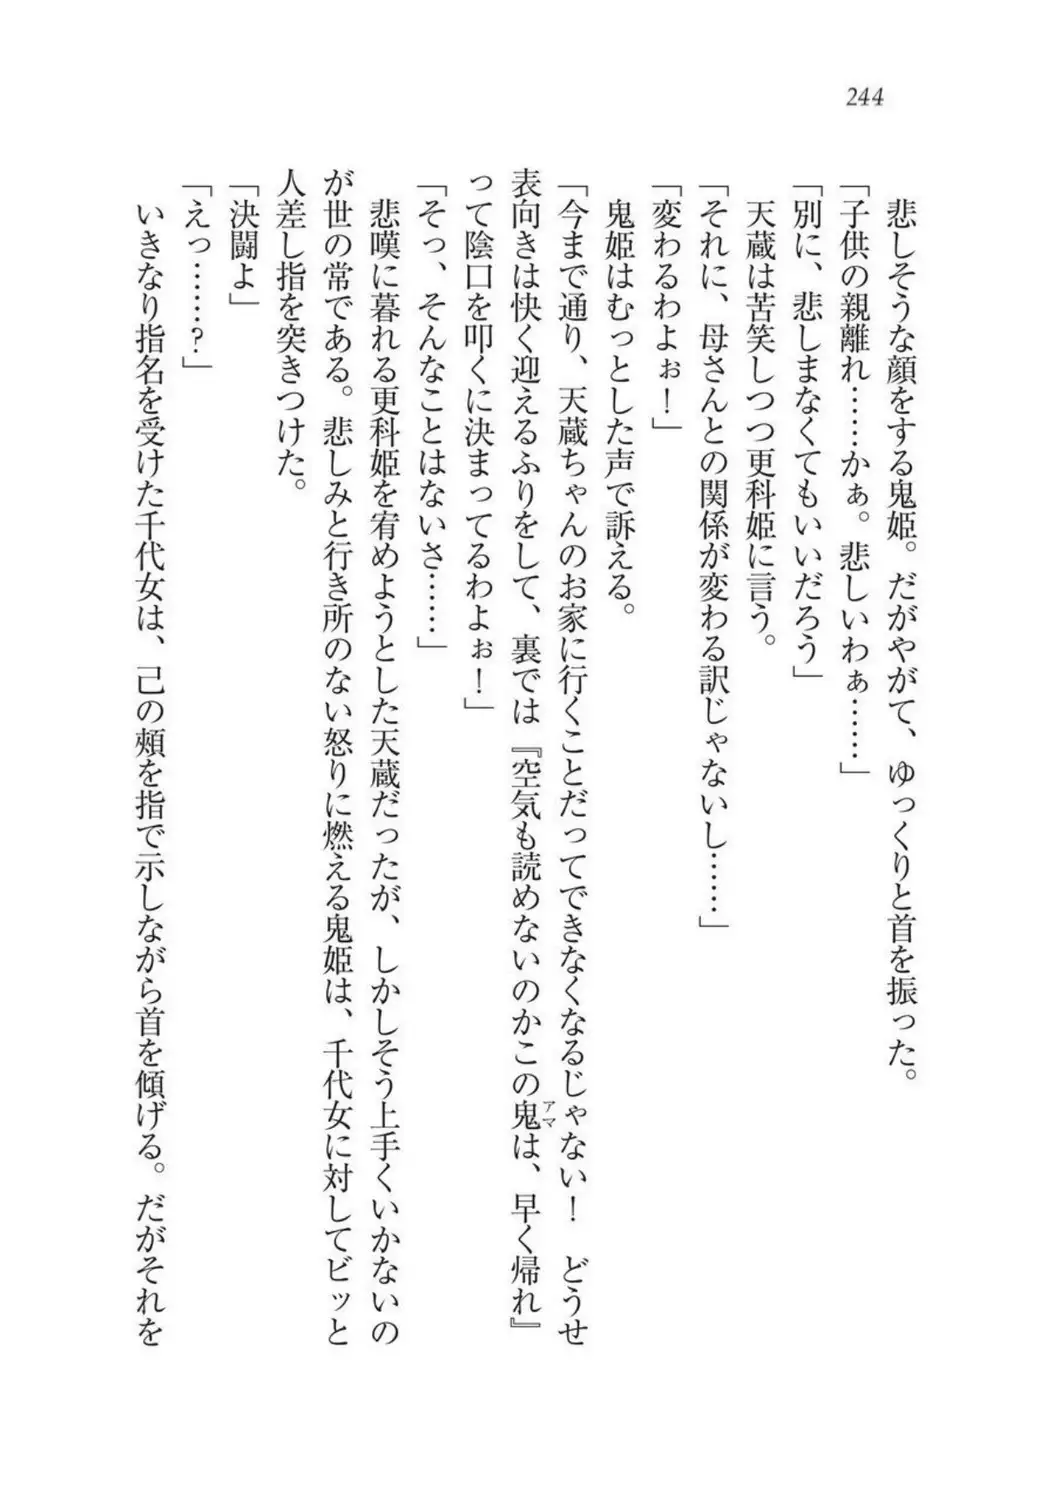 244
悲しそうな顔をする鬼姫。だがやがて、ゆっくりと首を振った。
「子供の親離れ……かぁ。悲しいわぁ……」
「別に、悲しまなくてもいいだろう」
天蔵は苦笑しつつ更科姫に言う。
「それに、母さんとの関係が変わる訳じゃないし……」
「変わるわよぉ！」
鬼姫はむっとした声で訴える。
「今まで通り、天蔵ちゃんのお家に行くことだってできなくなるじゃない！　どうせ
表向きは快く迎えるふりをして、裏では『空気も読めないのかこの鬼は、早く帰れ』
アマ
って陰口を叩くに決まってるわよぉ！」
「そっ、そんなことはないさ……」
悲嘆に暮れる更科姫を宥めようとした天蔵だったが、しかしそう上手くいかないの
が世の常である。悲しみと行き所のない怒りに燃える鬼姫は、千代女に対してビッと
人差し指を突きつけた。
「決闘よ」
「えっ……？」
いきなり指名を受けた千代女は、己の頰を指で示しながら首を傾げる。だがそれを